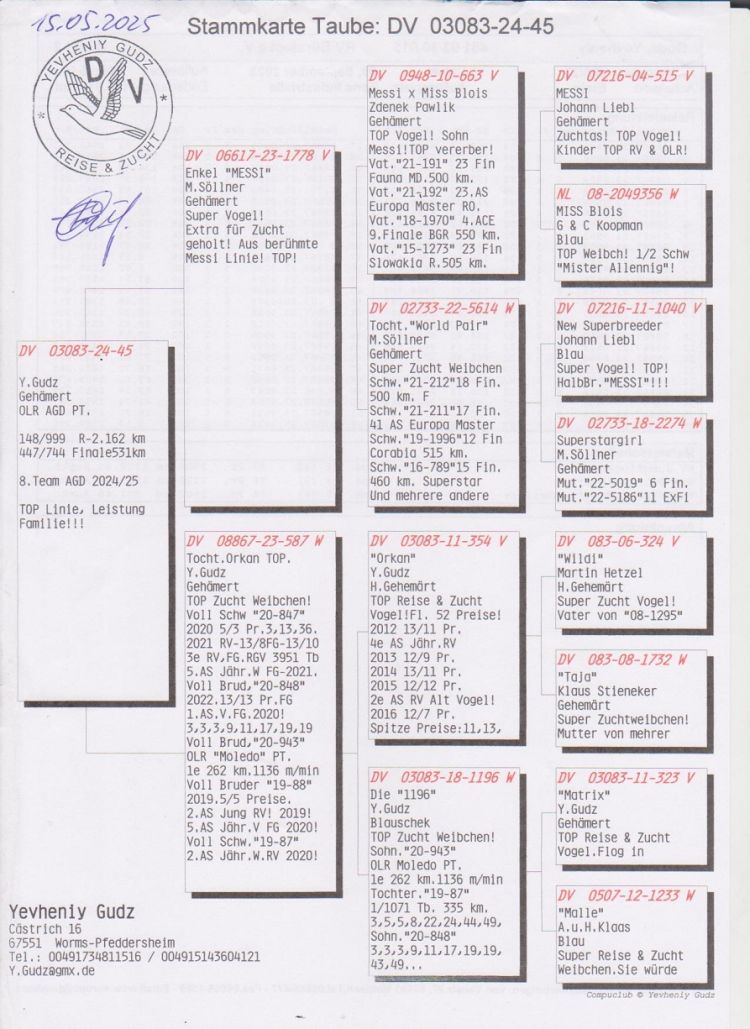 15.05.2025
Stammkarte Taube: DV 03083-24-45
YEVHENIY GUDZ
D V
* REISE & ZUCHT *
DV 03083-24-45
Y.Gudz
Gehämert
OLR AGD PT.
148/999 R-2.162 km
447/744 Finale531km
8.Team AGD 2024/25
TOP Linie, Leistung
Familie!!!
DV 06617-23-1778 V
Enkel "MESSI"
M.Söllner
Gehämert
Super Vogel!
Extra für Zucht
geholt! Aus berühmte
Messi Linie! TOP!
DV 08867-23-587 W
Tocht.Orkan TOP.
Y.Gudz
Gehämert
TOP Zucht Weibchen!
Voll Schw "20-847"
2020 5/3 Pr.3,13,36.
2021 RV-13/8FG-13/10
3e RV,FG.RGV 3951 Tb
5.AS Jähr.W FG-2021.
Voll Brud,"20-848"
2022.13/13 Pr.FG
1.AS.V.FG.2020!
3,3,3,9,11,17,19,19
Voll Brud,"20-943"
OLR "Moledo" PT.
1e 262 km.1136 m/min
Voll Bruder "19-88"
2019.5/5 Preise.
2.AS Jung RV! 2019!
5,AS Jähr.V FG 2020!
Voll Schw."19-87"
2.AS Jähr.W.RV 2020!
DV 0948-10-663 V
Messi x Miss Blois
Zdenek Pawlik
Gehämert
TOP Vogel! Sohn
Messi!TOP vererber!
Vat."21-191" 23 Fin
Fauna MD.500 km.
Vat."21,192" 23.AS
Europa Master RO.
Vat."18-1970" 4.ACE
9.Finale BGR 550 km.
Vat."15-1273" 23 Fin
Slowakia R.505 km.
DV 02733-22-5614 W
Tocht."World Pair"
M.Söllner
Gehämert
Super Zucht Weibchen
Schw."21-212"18 Fin.
500 km. F
Schw."21-211"17 Fin.
41 AS Europa Master
Schw."19-1996"12 Fin
Corabia 515 km.
Schw."16-789"15 Fin.
460 km. Superstar
Und mehrere andere
DV 03083-11-354 V
"Orkan"
Y.Gudz
H.Gehemärt
TOP Reise & Zucht
Vogel!Fl. 52 Preise!
2012 13/11 Pr.
4e AS Jähr.RV
2013 12/9 Pr.
2014 13/11 Pr.
2015 12/12 Pr.
2e AS RV Alt Vogel!
2016 12/7 Pr.
Spitze Preise:11,13,
DV 03083-18-1196 W
Die "1196"
Y.Gudz
Blauschek
TOP Zucht Weibchen!
Sohn."20-943"
OLR Moledo PT.
1e 262 km.1136 m/min
Tochter."19-87"
1/1071 Tb. 335 km.
3,5,5,8,22,24,44,49,
Sohn."20-848"
3,3,3,9,11,17,19,19,
43,49...
DV 07216-04-515 V
MESSI
Johann Liebl
Gehämert
Zuchtas! TOP Vogel!
Kinder TOP RV & OLR!
NL 08-2049356 W
MISS Blois
G & C Koopman
Blau
TOP Weibch! 1/2 Schw
"Mister Allennig"!
DV 07216-11-1040 V
New Superbreeder
Johann Liebl
Blau
Super Vogel! TOP!
HalbBr."MESSI"!!!
DV 02733-18-2274 W
Superstargirl
M.Söllner
Gehämert
Mut."22-5019" 6 Fin.
Mut."22-5186"11 ExFi
DV 083-06-324 V
"Wildi"
Martin Hetzel
H.Gehemärt
Super Zucht Vogel!
Vater von "08-1295"
DV 083-08-1732 W
"Taja"
Klaus Stieneker
Gehemärt
Super Zuchtweibchen!
Mutter von mehrer
DV 03083-11-323 V
"Matrix"
Y.Gudz
Gehämert
TOP Reise & Zucht
Vogel.Flog in
DV 0507-12-1233 W
"Malle"
A.u.H.Klaas
Blau
Super Reise & Zucht
Weibchen.Sie würde
Yevheniy Gudz
Cästrich 16
67551 Worms-Pfeddersheim
Tel.: 00491734811516 / 004915143604121
Y.Gudz@gmx.de
Compuclub © Yevheniy Gudz